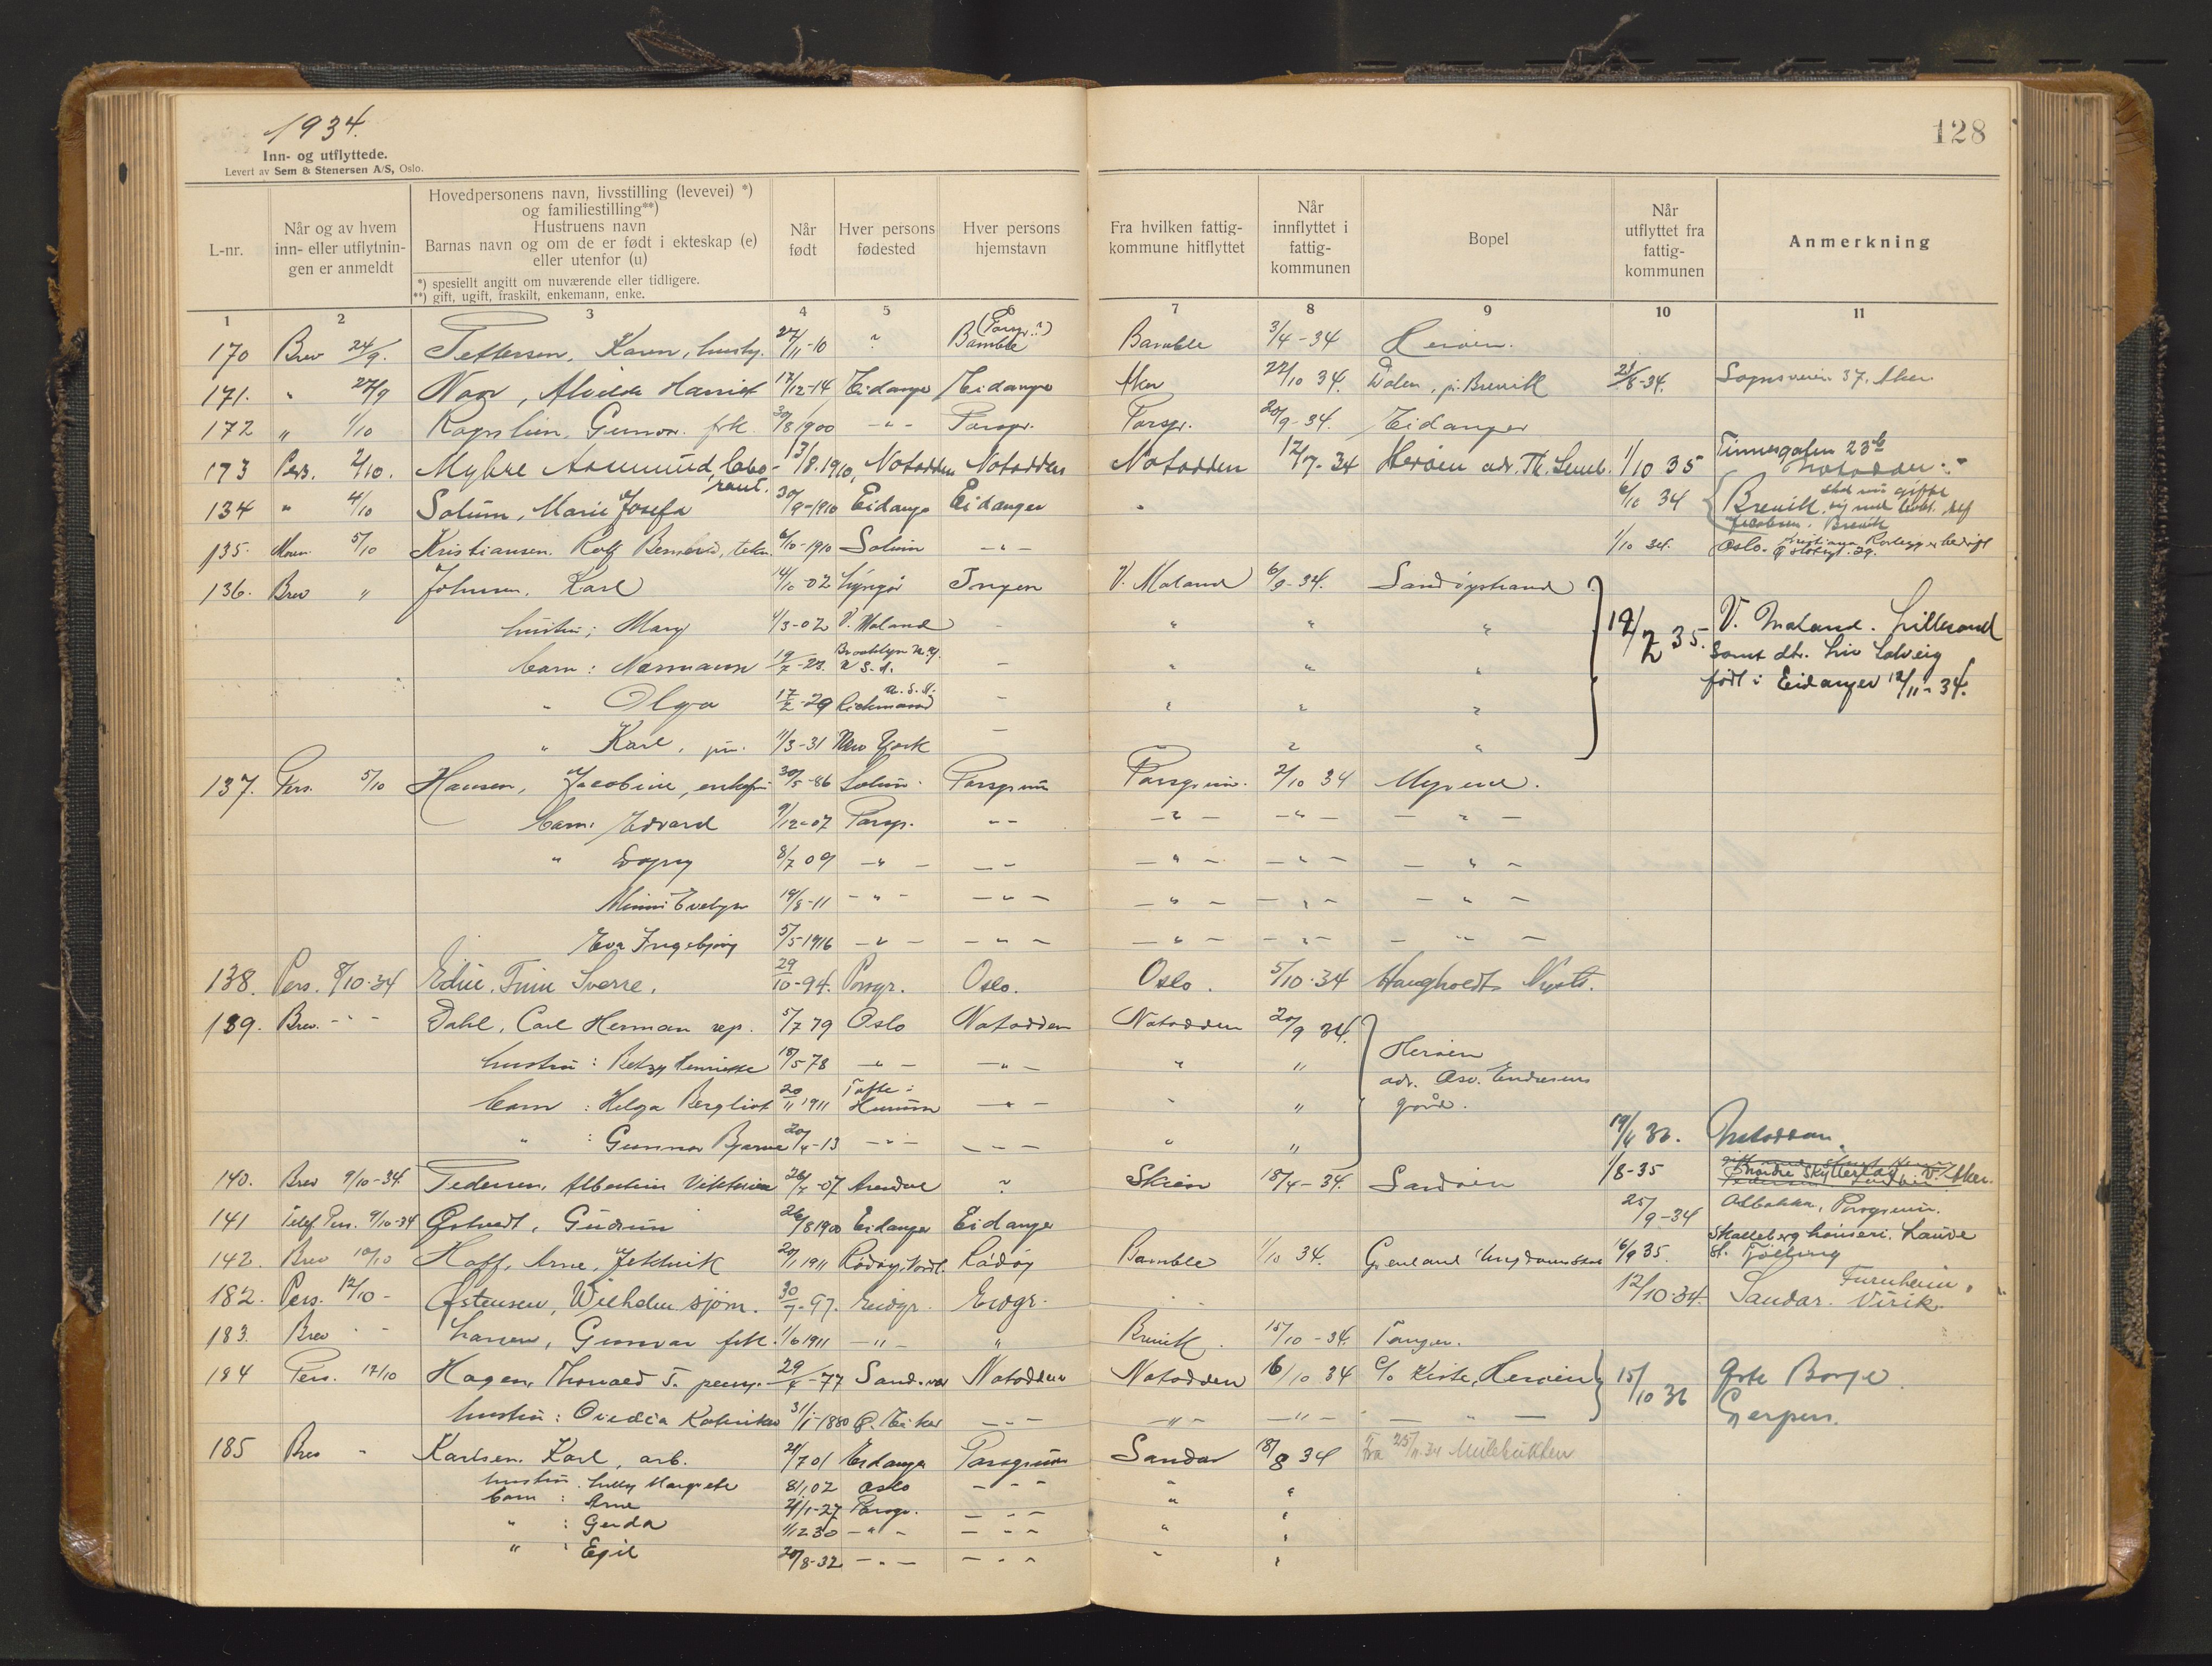 1934.
128
Inn- og utflyttede.
Levert av Sem & Stenersen A/S, Oslo.
L-nr.
Når og av hvem inn- eller utflytnin- gen er anmeldt
Hovedpersonens navn, livsstilling (levevei) *)
og familiestilling**)
Hustruens navn
Barnas navn og om de er født i ekteskap (e)
eller utenfor (u)
*) spesiellt angitt om nuværende eller tidligere.
**) gift, ugift, fraskilt, enkemann, enke.
Når født
Hver persons fødested
Hver persons hjemstavn
Fra hvilken fattig- kommune hitflyttet
Når innflyttet i fattig- kommunen
Bopel
Når utflyttet fra fattig- kommunen
Anmerkning
1 2 3 4 5 6 7 8 9 10 11
170 Brev 24/9. Pettersen, Karen, 27/11-10 ? Bamble (Porsgr.?) Bamble 3/4-34 Herøen.
171. " 27/9 Alvilde Harriet 17/12-14 Eidanger Eidanger Aker 22/10 34. Dalen, p. Brevik 21/8-34. Sognsveien 37, Aker
172 " 1/10 Gunvor. frk. 30/8 1900 - " - Porsgr. Porsgr. 20/9-34. Eidanger
173 Pers. 2/10. Myhre Aasmund, labo- rant. 13/8.1910, Notodden Notodden Notodden 12/7-34 Herøen adr. Th. 1/10 35 Tinnesgaten 23b Notodden
134 " 4/10 Solum, Marie Josefa 30/9-1910 Eidanger Eidanger 6/10 34 Brevik, skal gifte sig med Jacobsen. Brevik
135. 5/10 Kristiansen. Rolf 6/10-1910 Solum - " - 1/10 34. Oslo.
136. Brev " Johnsen, Karl 14/10-02 Lyngør Ingen V. Moland 6/9-34. Sandøystrand
hustru; Mary 4/3-02 V. Moland - " " " 12/2 35. V. Moland. Lillesand
barn: Normann 19/7-23. Brooklyn N.Y. U.S.A. - " " " samt dtr. Liv Solveig
" Olga 17/2-29 Richmond U.S.A. - " " " født i Eidanger 12/11-34.
" Karl, jun. 11/3-31 New York - " " "
137. Pers. 5/10 Hansen, Jacobine, enkefru 30/5-86 Solum Porsgrunn Porsgrunn. 2/10 34 Myrene.
barn: Edvard 9/12-07 Porsgr. - " - - " - - " - - " -
" Dagny 8/7 09 - " - - " - - " - - " - - " -
Minni Evelyn 19/8-11 - " - - " - - " - - " - - " -
Eva Ingebjørg 5/5-1916 - " - - " - - " - - " - - " -
138. Pers. 8/10-34 Finn Sverre. 29/10-94. Porsgr. Oslo. Oslo. 5/10-34
139. Brev. - " - Dahl, Carl Herman rep. 5/7 79 Oslo Notodden Notodden 20/9 34. Herøen
hustru: Betzy Henriette 18/5 78 - " - - " - " " adr. Osv. Endresens
barn: Helga Bergliot 20/11 1911 Tofte i Hurum - " - " " gård.
" : Gunnar Bjarne 20/4-13 - " - - " - " " 19/4 36. Notodden.
140. Brev 9/10-34 Pedersen, Viktoria 26/7-07 Arendal ? Skien 18/4-34. Sandøen 1/8-35 V. Aker.
141 Telef. Pers. 9/10-34 Østvedt, Gudrun 26/8 1900 Eidanger Eidanger 25/9-34 Porsgrunn.
142. Brev 10/10 Hoff, Arne, 20/1 1911 Rødøy, Nordl. Rødøy Bamble 1/10 34. Grenland Ungdomsskole 16/9 35. Skalleberg hønseri, Lauve st. Tjølling
182. Pers. 12/10 - Østensen, Wilhelm sjøm. 30/7-97. Eidgr. Eidgr. 12/10-34. Sandar. Furuheim, Virik.
183. Brev - " - Larsen, Gunvor frk. 1/6 1911 - " - " Brevik. 15/10-34. Tangen.
184 Pers. 17/10 Hagen, Thorvald T. pensj. 29/4-77 Notodden Notodden 16/10 34 c/o Herøen 15/10 36 Borge Gjerpen.
hustru: 31/1-1880 Ø. Eiker - " - - " - - " - - " -
185 Brev " Karlsen Karl, arb. 21/7 01 Eidanger Porsgrunn Sandar 18/8 34 Fra 25/11 34 Mulebukken
hustru: Lilly Margrete 8/1 02 Oslo - " - " "
barn: Arne 21/1-27 Porsgr. - " - " "
" : Gerda 1/12 30 - " - - " - " "
" : Egil 20/8-32 - " - - " - " "